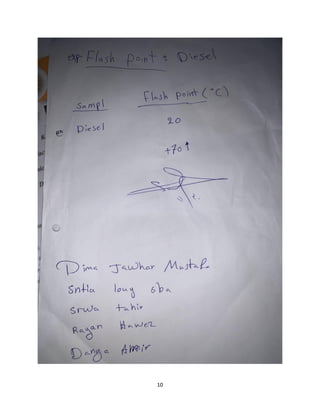 exp Flash point : Diesel
Sampl Flash point (°C)
Diesel 20
+70↑
Dima Jawhar Mustafa
Sntia louy oba
Srwa tahir
Rayan Hawez
Danya Ameir
10